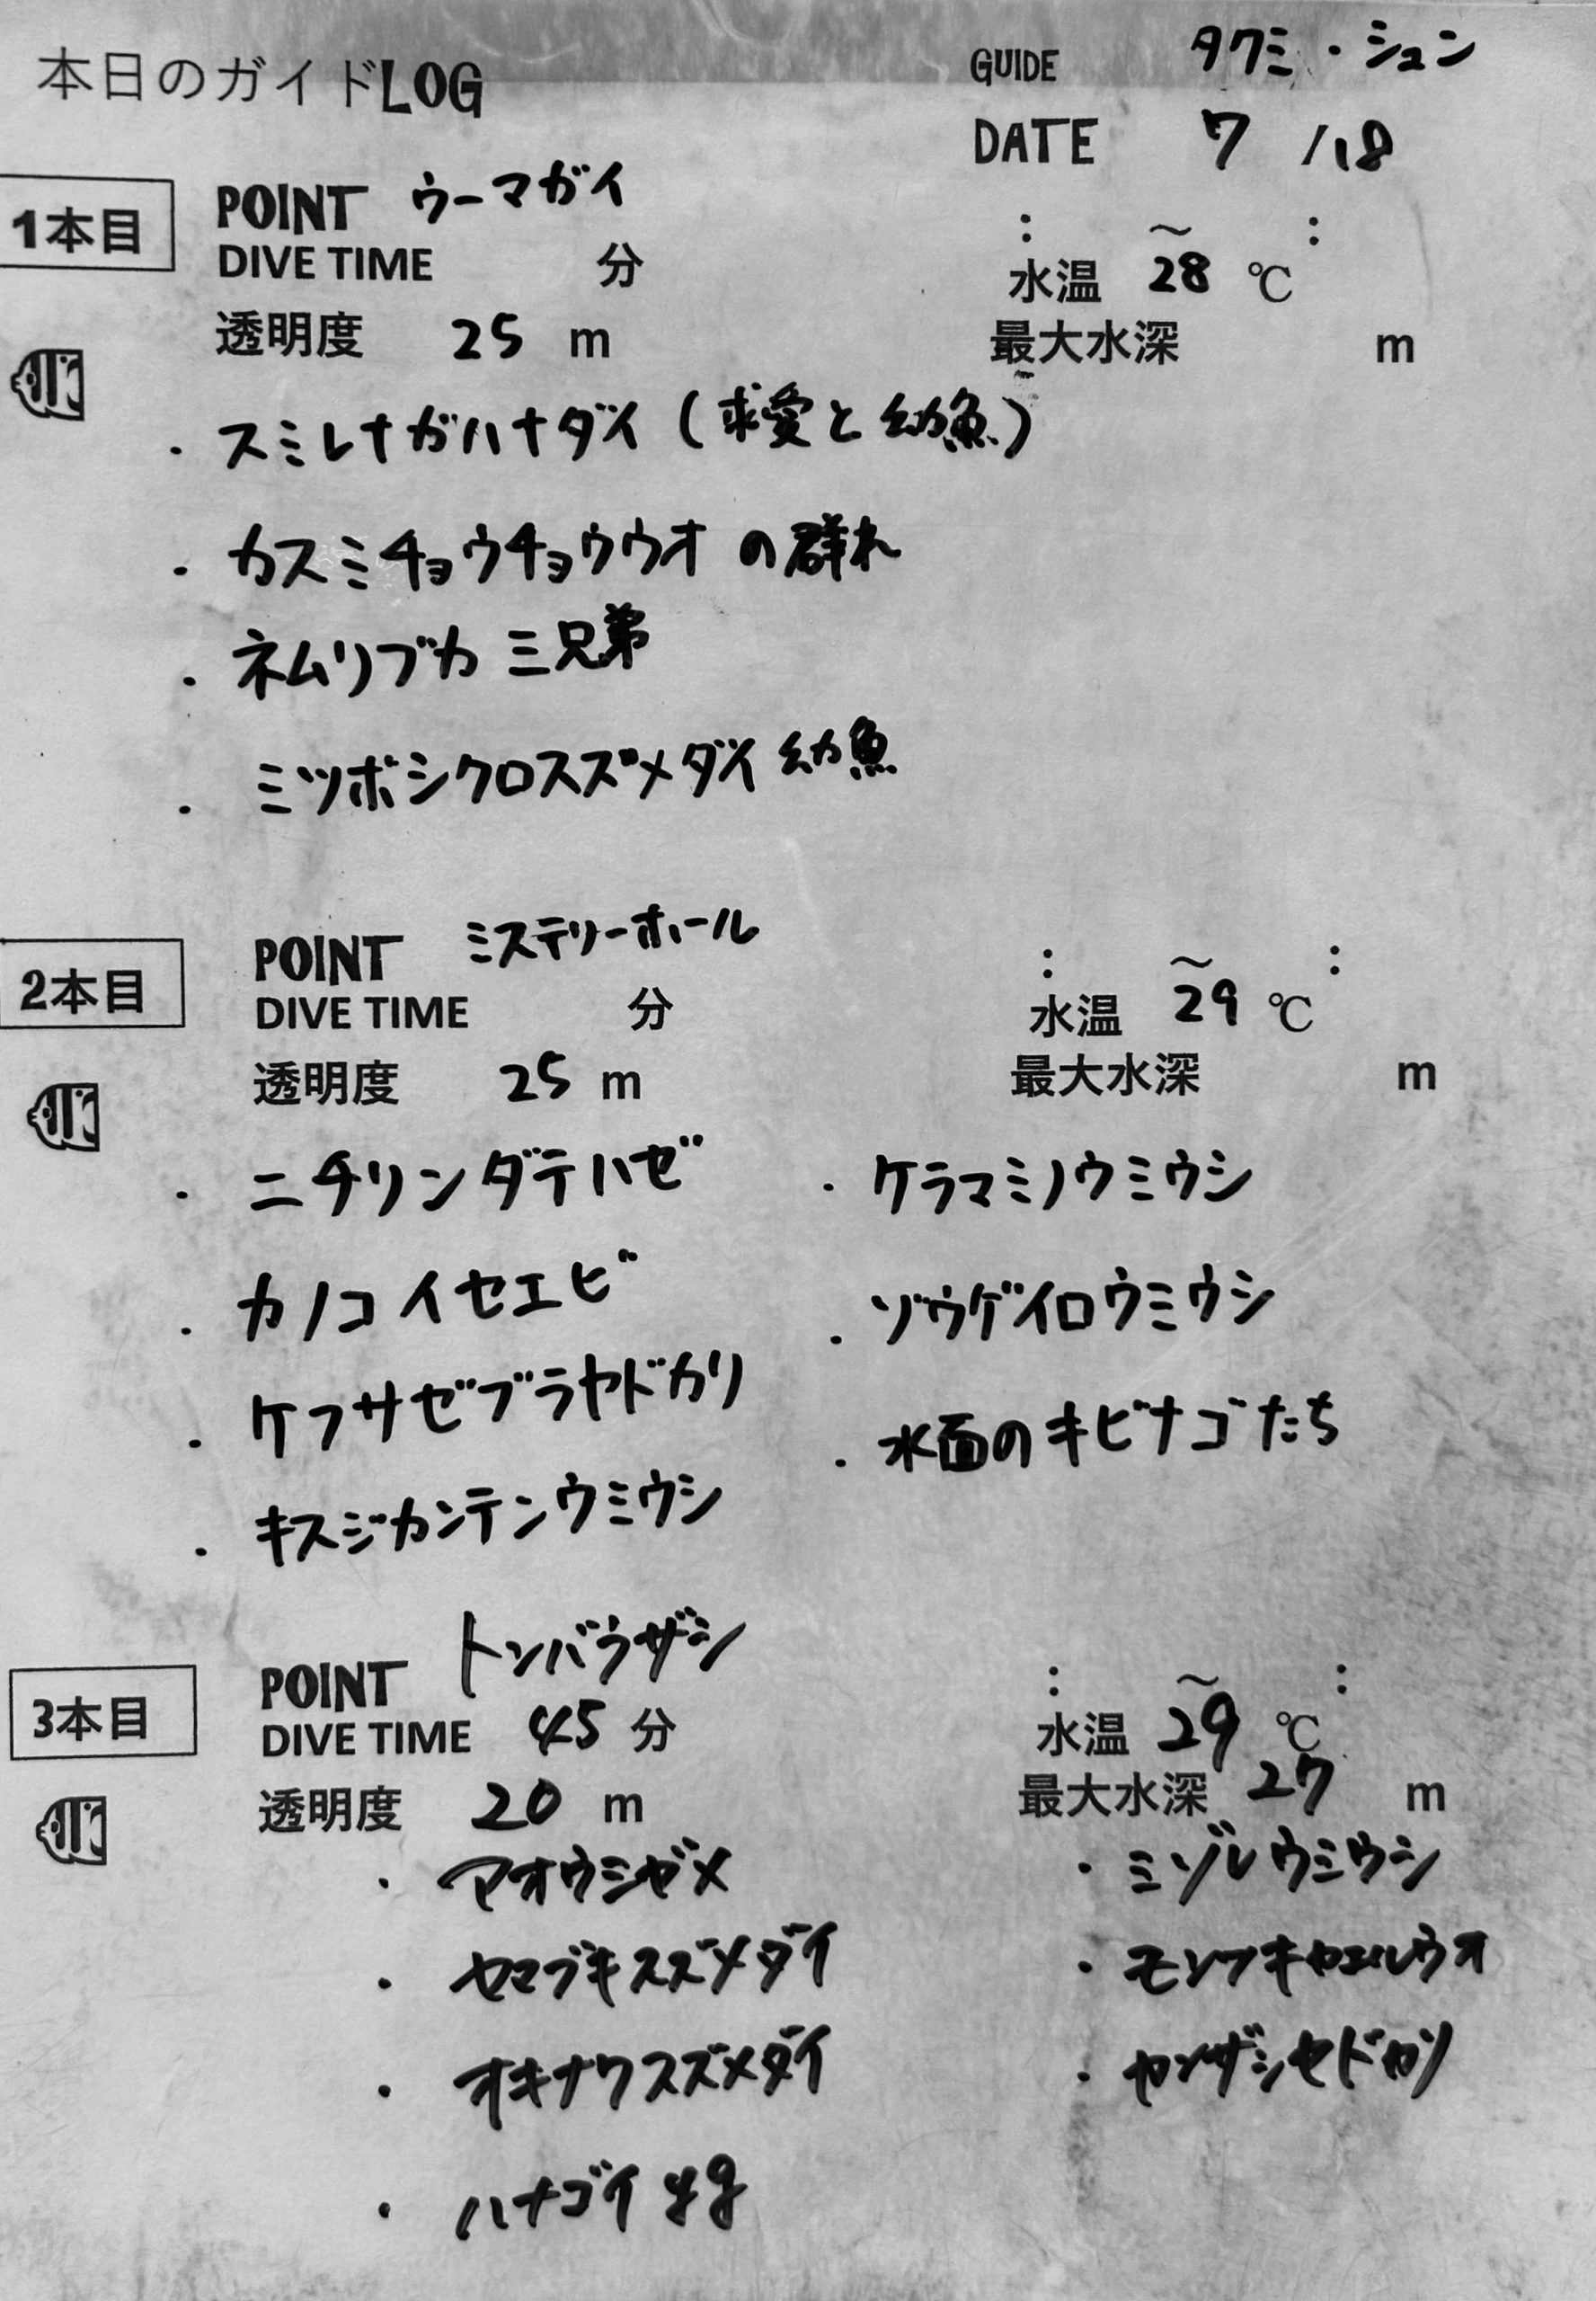 本日のガイドLOG
GUIDE タクミ・シュン
DATE 7 /18
1本目
POINT ウーマガイ : ～ :
DIVE TIME 分 水温 28 ℃
透明度 25 m 最大水深 m
・スミレナガハナダイ (求愛と幼魚)
・カスミチョウチョウウオの群れ
・ネムリブカ 三兄弟
・ミツボシクロスズメダイ 幼魚
2本目
POINT ミステリーホール : ～ :
DIVE TIME 分 水温 29 ℃
透明度 25 m 最大水深 m
・ニチリンダテハゼ ・ケラマミノウミウシ
・カノコイセエビ ・ゾウゲイロウミウシ
・ケフサゼブラヤドカリ ・水面のキビナゴたち
・キスジカンテンウミウシ
3本目
POINT トンバラザシ : ～ :
DIVE TIME 45 分 水温 29 ℃
透明度 20 m 最大水深 27 m
・マオウミガメ ・ミゾレウミウシ
・ヤマブキスズメダイ ・モンツキカエルウオ
・オキナワスズメダイ ・カンザシヤドカリ
・ハナゴイ yg